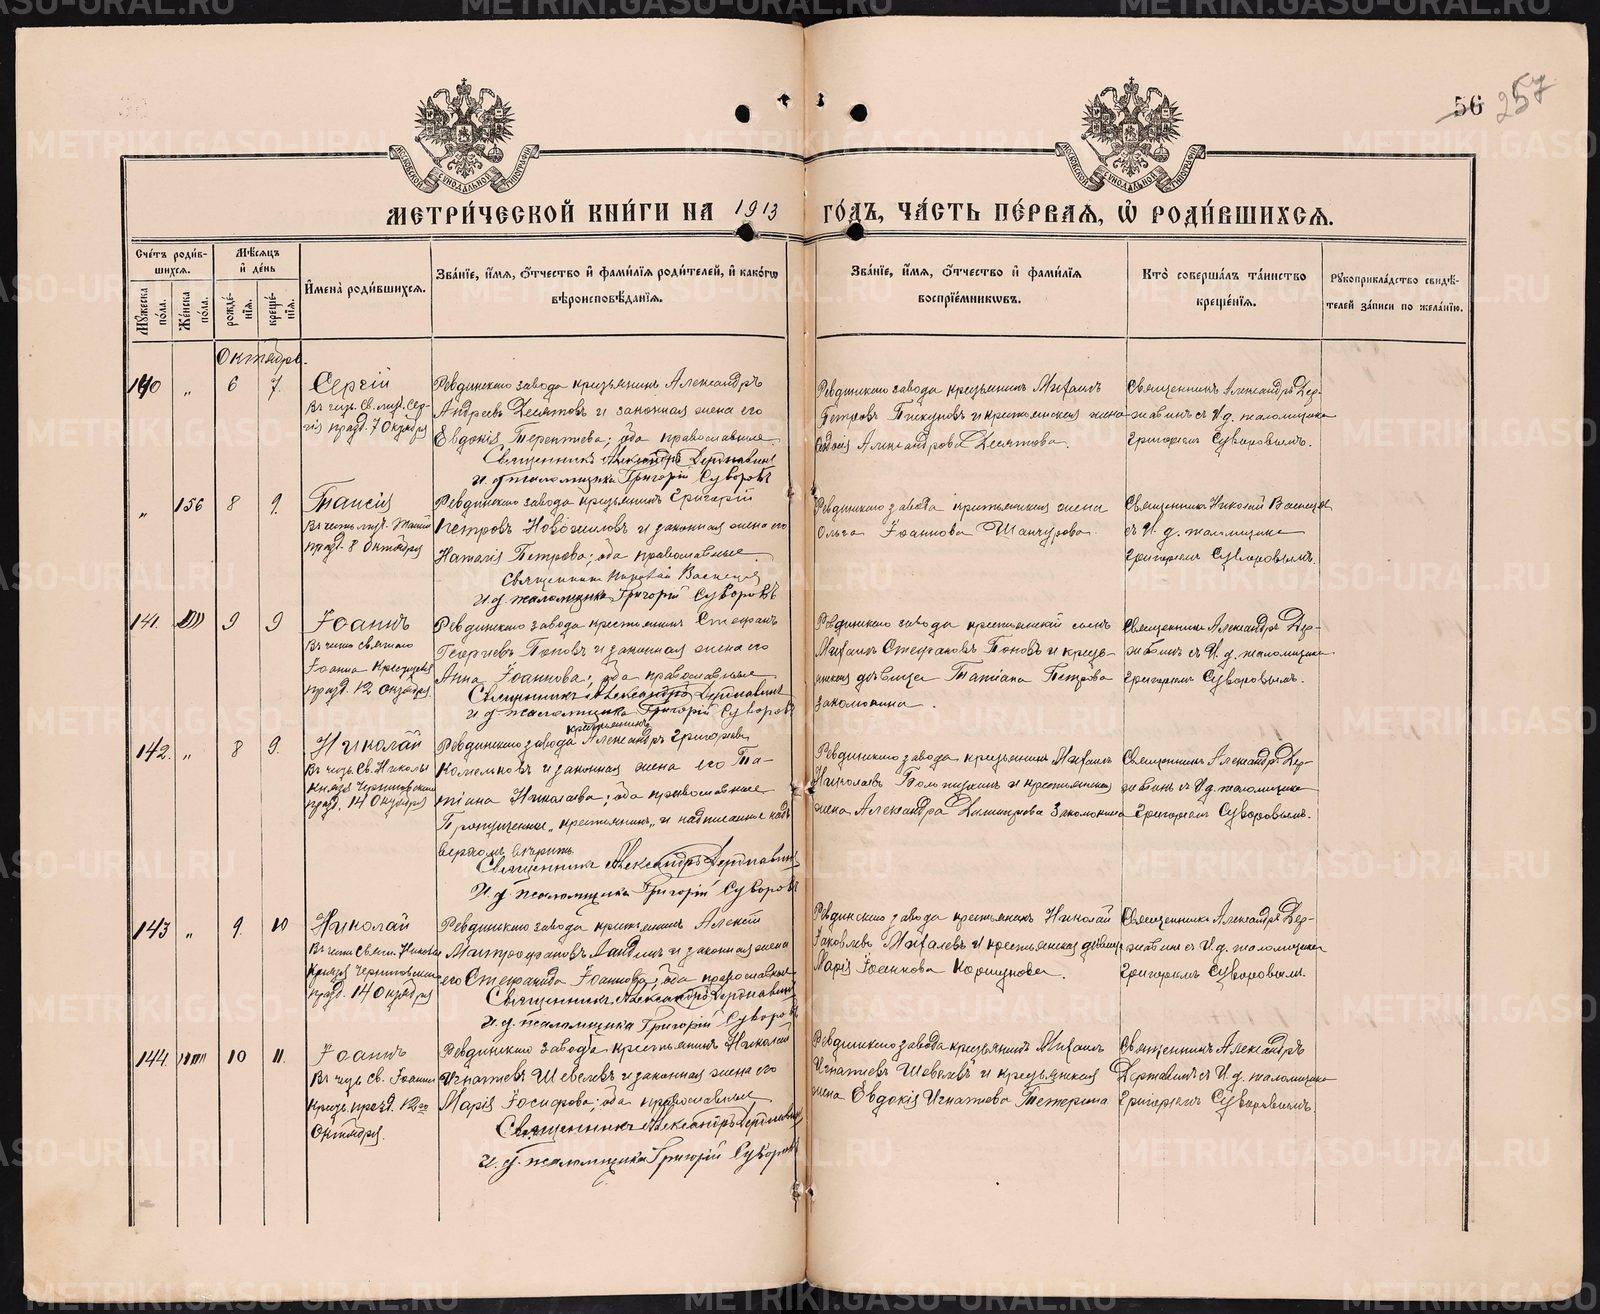 56 257
МЕТРИ́ЧЕСКОЙ КНИ́ГИ НА 1913 ГО́ДЪ, ЧА́СТЬ ПЕ́РВАЯ, Ѡ҆ РОДИ́ВШИХСЯ.
Сче́тъ роди́в-
шихся.
Му́жеска по́ла.
Же́нска по́ла.
Мѣ́сяцъ
и҆ де́нь
рожде́-
нїя.
креще́-
нїя.
И҆мена̀ роди́вшихся.
Зва́нїе, и҆́мя, ѻ҆́тчество и҆ фами́лїя роди́телей, и҆ како́гѡ
вѣроисповѣ́данїя.
Зва́нїе, и҆́мя, ѻ҆́тчество и҆ фами́лїя
воспрїе́мникѡвъ.
Кто̀ соверша́лъ та́инство
креще́нїя.
Рꙋкоприкла́дство свидѣ́-
телей за́писи по жела́нїю.
Октябрь.
140 " 6 7
Сергій
Въ честь Св. муч. Сер-
гія празд. 7 Октября
Ревдинскаго завода крестьянинъ Александръ
Андреевъ Десятовъ и законная жена его
Евдокія Терентьева; оба православные
Священникъ Александръ Державинъ
И. д. псаломщика Григорій Суворовъ
Ревдинскаго завода крестьянинъ Михаилъ
Петровъ Пискуновъ и крестьянская жена
Александрова Десятова.
Священникъ Александръ Дер-
жавинъ съ И. д. псаломщика
Григоріемъ Суворовымъ.
" 156 8 9.
Таисія
Въ честь муч. Таисіи
празд. 8 Октября
Ревдинскаго завода крестьянинъ Григорій
Петровъ Новожиловъ и законная жена его
Наталія Петрова; оба православные
Священникъ Николай
И. д. псаломщика Григорій Суворовъ
Ревдинскаго завода крестьянская жена
Ольга Іоаннова Шанчурова.
Священникъ Николай
съ И. д. псаломщика
Григоріемъ Суворовымъ.
141. 9 9
Іоаннъ
Въ честь святаго
Іоанна
празд. 12 Октября.
Ревдинскаго завода крестьянинъ Стефанъ
Георгіевъ Поповъ и законная жена его
Анна Іоаннова; оба православные
Священникъ Александръ Державинъ
И. д. псаломщика Григорій Суворовъ
Ревдинскаго завода крестьянскій сынъ
Михаилъ Стефановъ Поповъ и кресть-
янская дѣвица Татіана Петрова
Закомолкина.
Священникъ Александръ Дер-
жавинъ съ И. д. псаломщика
Григоріемъ Суворовымъ.
142. " 8 9.
Николай
Въ честь Св. Николы
Князя Черниговскаго
празд. 14 Октября
крестьянинъ
Ревдинскаго завода Александръ Григорьевъ
и законная жена его Та-
тіана Николаева; оба православные
Пропущенное „крестьянинъ" и надписанное надъ
верхомъ вѣрить
Священникъ Александръ Державинъ
И. д. псаломщика Григорій Суворовъ
Ревдинскаго завода крестьянинъ Михаилъ
Николаевъ и крестьянская
жена Александра Димитріева Закомолкина
Священникъ Александръ Дер-
жавинъ съ И. д. псаломщика
Григоріемъ Суворовымъ.
143 " 9. 10
Николай
Въ честь Святаго Николы
Князя Черниговскаго
празд. 14 Октября
Ревдинскаго завода крестьянинъ Алексѣй
Митрофановъ и законная жена
его Стефанида Іоаннова; оба православные
Священникъ Александръ Державинъ
И. д. псаломщика Григорій Суворовъ
Ревдинскаго завода крестьянинъ Николай
Яковлевъ Михалевъ и крестьянская дѣвица
Марія Іоаннова Коршунова.
Священникъ Александръ Дер-
жавинъ съ И. д. псаломщика
Григоріемъ Суворовымъ.
144. 10 11.
Іоаннъ
Въ честь Св. Іоанна
празд. 12го
Октября.
Ревдинскаго завода крестьянинъ Николай
Игнатіевъ Шевелевъ и законная жена его
Марія Іосифова; оба православные
Священникъ Александръ Державинъ
И. д. псаломщика Григорій Суворовъ
Ревдинскаго завода крестьянинъ Михаилъ
Игнатіевъ Шевелевъ и крестьянская
жена Евдокія Игнатіева Тетерина
Священникъ Александръ
Державинъ съ И. д. псаломщика
Григоріемъ Суворовымъ.
METRIKI.GASO-URAL.RU